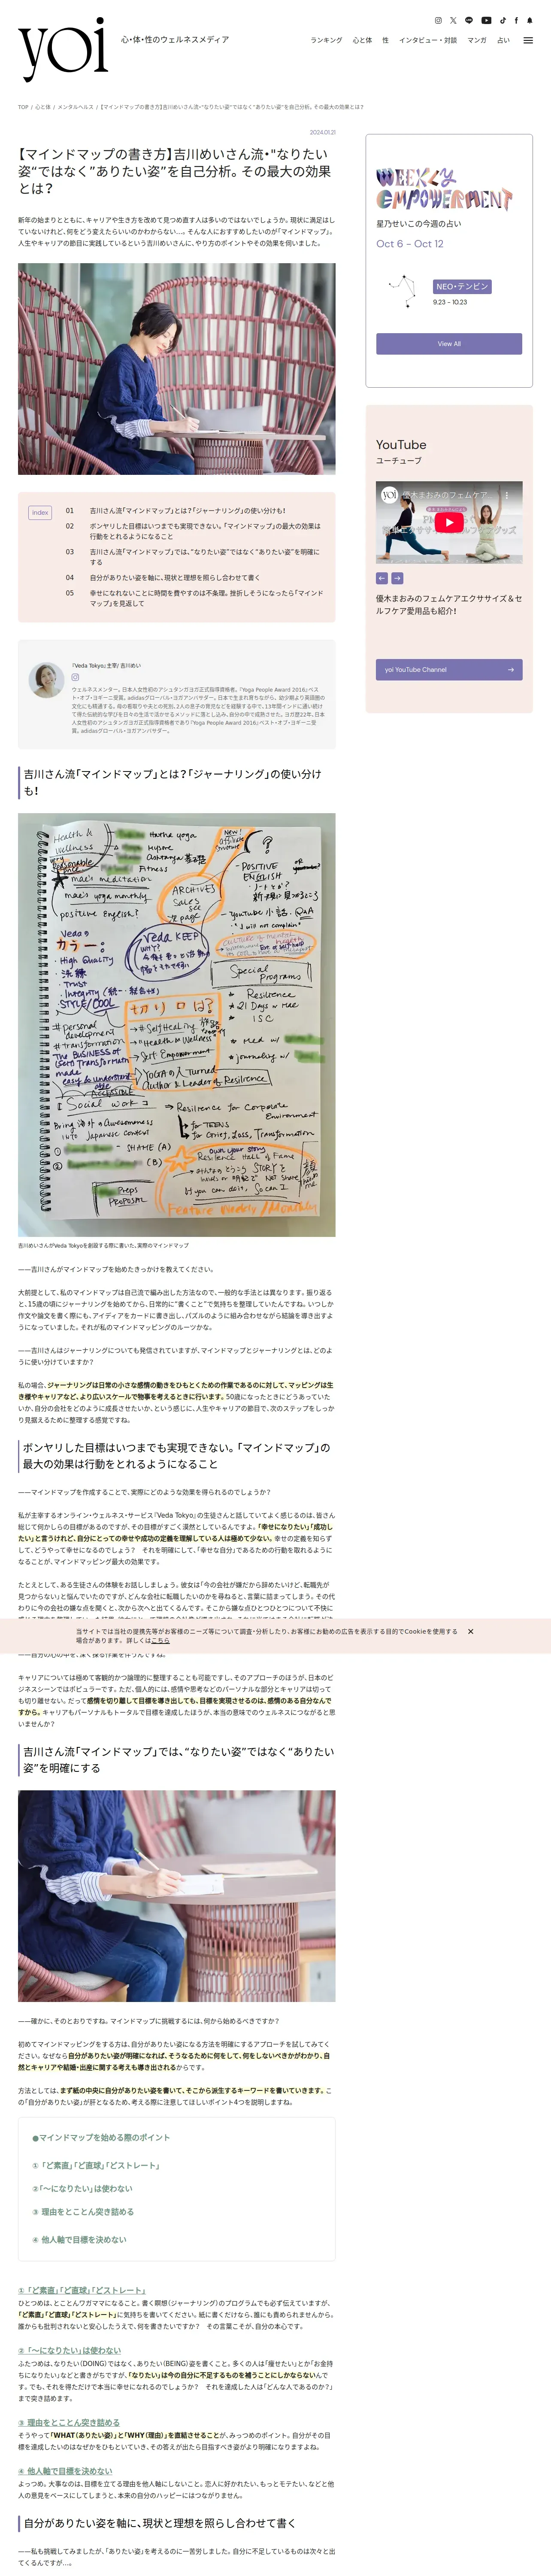 yoi
心・体・性のウェルネスメディア
ランキング 心と体 性 インタビュー・対談 マンガ 占い
TOP / 心と体 / メンタルヘルス / 【マインドマップの書き方】吉川めいさん流・"なりたい姿"ではなく"ありたい姿"を自己分析。その最大の効果とは?
2024.01.21
【マインドマップの書き方】吉川めいさん流・"なりたい
姿"ではなく"ありたい姿"を自己分析。その最大の効果
とは?
新年の始まりとともに、キャリアや生き方を改めて見つめ直す人は多いのではないでしょうか。現状に満足はし
ていないけれど、何をどう変えたらいいのかわからない…。そんな人におすすめしたいのが「マインドマップ」。
人生やキャリアの節目に実践しているという吉川めいさんに、やり方のポイントやその効果を伺いました。
index
01 吉川さん流「マインドマップ」とは?「ジャーナリング」の使い分けも!
02 ボンヤリした目標はいつまでも実現できない。「マインドマップ」の最大の効果は
行動をとれるようになること
03 吉川さん流「マインドマップ」では、"なりたい姿"ではなく"ありたい姿"を明確に
する
04 自分がありたい姿を軸に、現状と理想を照らし合わせて書く
05 幸せになれないことに時間を費やすのは不条理。挫折しそうになったら「マインド
マップ」を見返して
『Veda Tokyo』主宰/ 吉川めい
ウェルネスメンター。日本人女性初のアシュタンガヨガ正式指導資格者。『Yoga People Award 2016』ベス
ト・オブ・ヨギーニ受賞。adidasグローバル・ヨガアンバサダー。日本で生まれ育ちながら、幼少期より英語圏の
文化にも精通する。母の看取りや夫との死別、2人の息子の育児などを経験する中で、13年間インドに通い続け
て得た伝統的な学びを日々の生活で活かせるメソッドに落とし込み、自分の中で成熟させた。ヨガ歴22年、日本
人女性初のアシュタンガヨガ正式指導資格者であり『Yoga People Award 2016』ベスト・オブ・ヨギーニ受
賞。adidasグローバル・ヨガアンバサダー。
吉川さん流「マインドマップ」とは?「ジャーナリング」の使い分け
も!
Health &
Wellness
Hatha yoga
New!
mae's meditation
mae's yoga monthly
positive English?
ARCHIVES
Sales page
POSITIVE ENGLISH?
YouTube 小話. Q&A
Vedaの
カラー:
・High Quality
・洗練
・Trust
・Integrity
STYLE/COOL
Veda KEEP
Special
Programs
・Resilience
・21 Days w Mae
・ISC
切り口は?
personal
development
The BUSINESS of
easy to understand
ACCESSIBLE
Social work
#Self Healing
Health & Wellness
Self Empowerment
Journaling w
Resilience for Corporate
Environment
for TEENS
Grief, Loss, Transformation
Japanese context
SHAME (A)
(B)
Resilience Hall of Fame
Preps
PROPOSAL
Feature Weekly/Monthly
吉川めいさんがVeda Tokyoを創設する際に書いた、実際のマインドマップ
——吉川さんがマインドマップを始めたきっかけを教えてください。
大前提として、私のマインドマップは自己流で編み出した方法なので、一般的な手法とは異なります。振り返る
と、15歳の頃にジャーナリングを始めてから、日常的に"書くこと"で気持ちを整理していたんですね。いつしか
作文や論文を書く際にも、アイディアをカードに書き出し、パズルのように組み合わせながら結論を導き出すよ
うになっていました。それが私のマインドマッピングのルーツかな。
——吉川さんはジャーナリングについても発信されていますが、マインドマップとジャーナリングとは、どのよ
うに使い分けていますか?
私の場合、ジャーナリングは日常の小さな感情の動きをひもとくための作業であるのに対して、マッピングは生
き様やキャリアなど、より広いスケールで物事を考えるときに行います。50歳になったときにどうあっていた
いか、自分の会社をどのように成長させたいか、という感じに、人生やキャリアの節目で、次のステップをしっか
り見据えるために整理する感覚ですね。
ボンヤリした目標はいつまでも実現できない。「マインドマップ」の
最大の効果は行動をとれるようになること
——マインドマップを作成することで、実際にどのような効果を得られるのでしょうか?
私が主宰するオンライン・ウェルネス・サービス『Veda Tokyo』の生徒さんと話していてよく感じるのは、皆さん
総じて何かしらの目標があるのですが、その目標がすごく漠然としているんですよ。「幸せになりたい」「成功し
たい」と言うけれど、自分にとっての幸せや成功の定義を理解している人は極めて少ない。幸せの定義を知らず
して、どうやって幸せになるのでしょう? それを明確にして、「幸せな自分」であるための行動を取れるように
なることが、マインドマッピング最大の効果です。
たとえとして、ある生徒さんの体験をお話ししましょう。彼女は「今の会社が嫌だから辞めたいけど、転職先が
見つからない」と悩んでいたのですが、どんな会社に転職したいのかを尋ねると、言葉に詰まってしまう。その代
わりに今の会社の嫌な点を聞くと、次から次へと出てくるんです。そこから嫌な点ひとつひとつについて不快に
当サイトでは当社の提携先等がお客様のニーズ等について調査・分析したり、お客様にお勧めの広告を表示する目的でCookieを使用する
場合があります。 詳しくはこちら
——自分の心の中を、深く探る作業を伴うんですね。
キャリアについては極めて客観的かつ論理的に整理することも可能ですし、そのアプローチのほうが、日本のビ
ジネスシーンではポピュラーです。ただ、個人的には、感情や思考などのパーソナルな部分とキャリアは切って
も切り離せない。だって感情を切り離して目標を導き出しても、目標を実現させるのは、感情のある自分なんで
すから。キャリアもパーソナルもトータルで目標を達成したほうが、本当の意味でのウェルネスにつながると思
いませんか?
吉川さん流「マインドマップ」では、"なりたい姿"ではなく"ありたい
姿"を明確にする
——確かに、そのとおりですね。マインドマップに挑戦するには、何から始めるべきですか?
初めてマインドマッピングをする方は、自分がありたい姿になる方法を明確にするアプローチを試してみてく
ださい。なぜなら自分がありたい姿が明確になれば、そうなるために何をして、何をしないべきかがわかり、自
然とキャリアや結婚・出産に関する考えも導き出されるからです。
方法としては、まず紙の中央に自分がありたい姿を書いて、そこから派生するキーワードを書いていきます。こ
の「自分がありたい姿」が肝となるため、考える際に注意してほしいポイント4つを説明しますね。
●マインドマップを始める際のポイント
①「ど素直」「ど直球」「どストレート」
②「〜になりたい」は使わない
③ 理由をとことん突き詰める
④ 他人軸で目標を決めない
①「ど素直」「ど直球」「どストレート」
ひとつめは、とことんワガママになること。書く瞑想(ジャーナリング)のプログラムでも必ず伝えていますが、
「ど素直」「ど直球」「どストレート」に気持ちを書いてください。紙に書くだけなら、誰にも責められませんから。
誰からも批判されないと安心したうえで、何を書きたいですか? その言葉こそが、自分の本心です。
②「〜になりたい」は使わない
ふたつめは、なりたい(DOING)ではなく、ありたい(BEING)姿を書くこと。多くの人は「痩せたい」とか「お金持
ちになりたい」などと書きがちですが、「なりたい」は今の自分に不足するものを補うことにしかならないんで
す。でも、それを得ただけで本当に幸せになれるのでしょうか? それを達成した人は「どんな人であるのか?」
まで突き詰めます。
③ 理由をとことん突き詰める
そうやって「WHAT(ありたい姿)」と「WHY(理由)」を直結させることが、みっつめのポイント。自分がその目
標を達成したいのはなぜかをひもといていき、その答えが出たら目指すべき姿がより明確になりますよね。
④ 他人軸で目標を決めない
よっつめ。大事なのは、目標を立てる理由を他人軸にしないこと。恋人に好かれたい、もっとモテたい、などと他
人の意見をベースにしてしまうと、本来の自分のハッピーにはつながりません。
自分がありたい姿を軸に、現状と理想を照らし合わせて書く
——私も挑戦してみましたが、「ありたい姿」を考えるのに一苦労しました。自分に不足しているものは次々と出
てくるんですが…。
WEEKLY
EMPOWERMENT
星乃せいこの今週の占い
Oct 6 - Oct 12
NEO・テンビン
9.23 - 10.23
View All
YouTube
ユーチューブ
優木まおみのフェムケアエクササイズ&セ
ルフケア愛用品も紹介!
yoi YouTube Channel